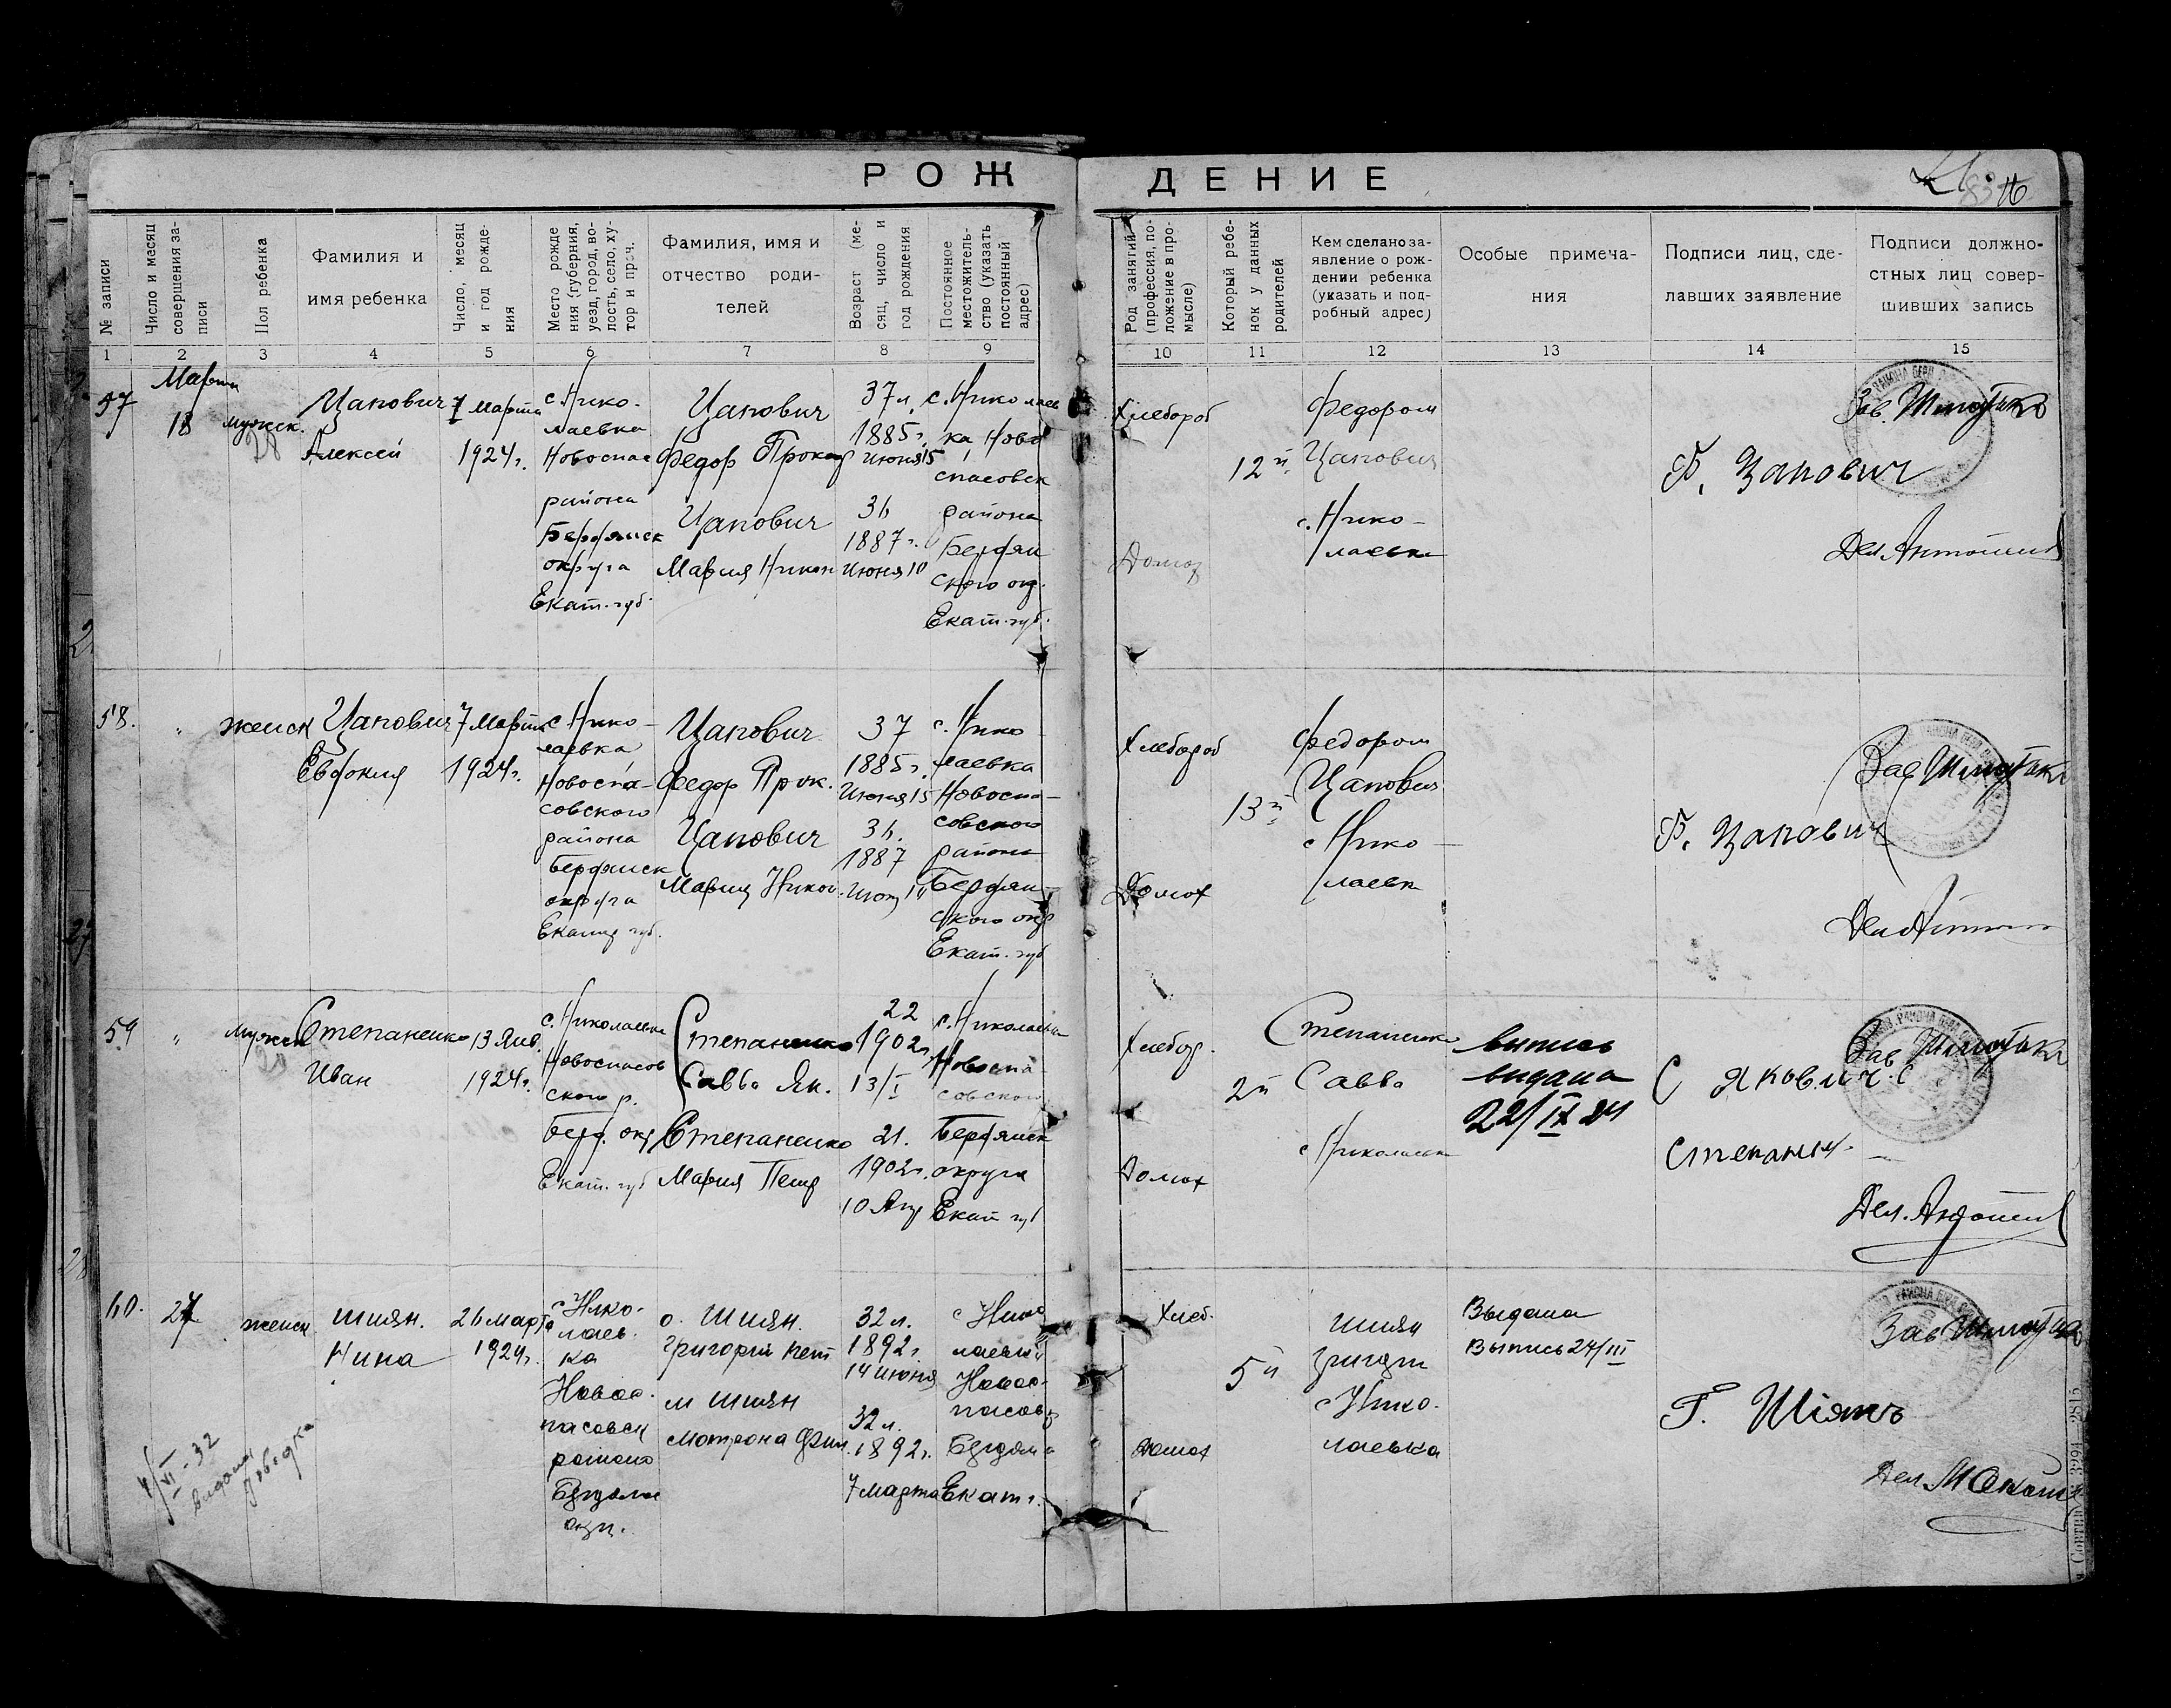 РОЖДЕНИЕ
№ записи
Число и месяц совершения за-
писи
Пол ребенка
Фамилия и
имя ребенка
Число, месяц
и год рожде-
ния
Место рожде
ния (губерния,
уезд, город, во-
лость, село, ху-
тор и проч.
Фамилия, имя и
отчество роди-
телей
Возраст (ме-
сяц, число и
год рождения
Постоянное
местожитель-
ство (указать
постоянный
адрес)
Род занятий
(профессия, по-
ложение в про-
мысле)
Который ребе-
нок у данных
родителей
Кем сделано за-
явление о рож-
дении ребенка
(указать и под-
робный адрес)
Особые примеча-
ния
Подписи лиц, сде-
лавших заявление
Подписи должно-
стных лиц совер-
шивших запись
1 2 3 4 5 6 7 8 9 10 11 12 13 14 15
57
Марта
18
мужск.
Цапович
Алексей
7 Марта
1924 г.
с. Нико-
лаевка
Новоспас
района
Бердянск
округа
Екат. губ.
Цапович
Федор Прок
Цапович
Мария Никон
37 л.
1885 г.
Июня 15
36
1887 г.
Июня 10
с. Николаев
ка Ново
спасовск
района
Бердян
ского окр.
Екат. губ.
Хлебороб
Домох
12й
Федором
Цапович
с. Нико-
лаевк
Ф. Цапович
Зав.
Дел.
58.
"
женск
Цапович
Евдокия
7 Марта
1924 г.
с Нико-
лаевка
Новоспа-
совского
района
Бердянск
округа
Екат губ.
Цапович
Федор Прок.
Цапович
Мария Никон
37
1885 г.
Июня 15
36.
1887
Июня 10
с. Нико
лаевка
Новоспа-
совского
района
Бердян-
ского окр
Екат. губ
Хлебороб
Домох
13й
Федором
Цапович
с Нико-
лаевк
Ф. Цапович
Зав
Дел
59
"
Мужск
Степаненко
Иван
13 Янв.
1924 г.
с. Николаевка
Новоспасов
ского р.
Берд. окр
Екат. губ
Степаненко
Савва Як.
Степаненко
Мария Петр
22
1902 г.
13/I
21.
1902 г.
10 Апр
с. Николаевка
Новоспа-
совского
Бердянск
округа
Екат губ
Хлебор.
Домох
2й
Степаненко
Савва
с Николаевк
випись
видана
22/IX 24
Зав
Дел.
60.
27
женск.
Шиян.
Нина
26 Марта
1924 г.
с Нико-
лаев-
ка
Новос-
пасовск
района
Бердян
окр.
о. Шиян.
Григорий Пет
м Шиян
Мотрона Фил.
32 л.
1892 г
14 июня
32 л.
1892 г.
7 марта
с Нико
лаевка
Новос-
пасов
Бердян
Екат г.
Хлеб.
домох
5й
Шиян
Григори
с Нико-
лаевка
Выдана
Выпись 24/III
Г. Шіянъ
Зав
Дел
4/VI-32
видана
довідка